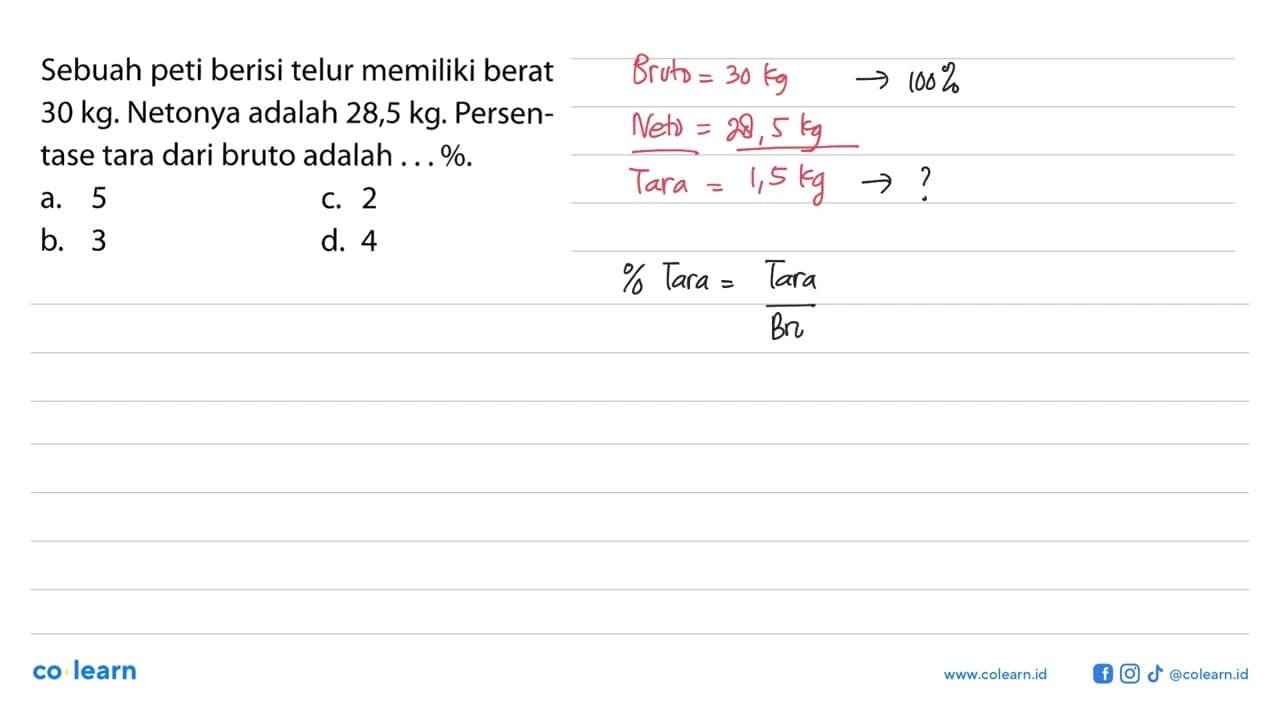 Sebuah peti berisi telur memiliki berat
30 kg. Netonya adalah 28,5 kg. Persen-
tase tara dari bruto adalah ... %.
a. 5 c. 2
b. 3 d. 4
Bruto = 30 kg → 100%
Neto = 28,5 kg
Tara = 1,5 kg → ?
% Tara = Tara
Bru
co learn
www.colearn.id @colearn.id